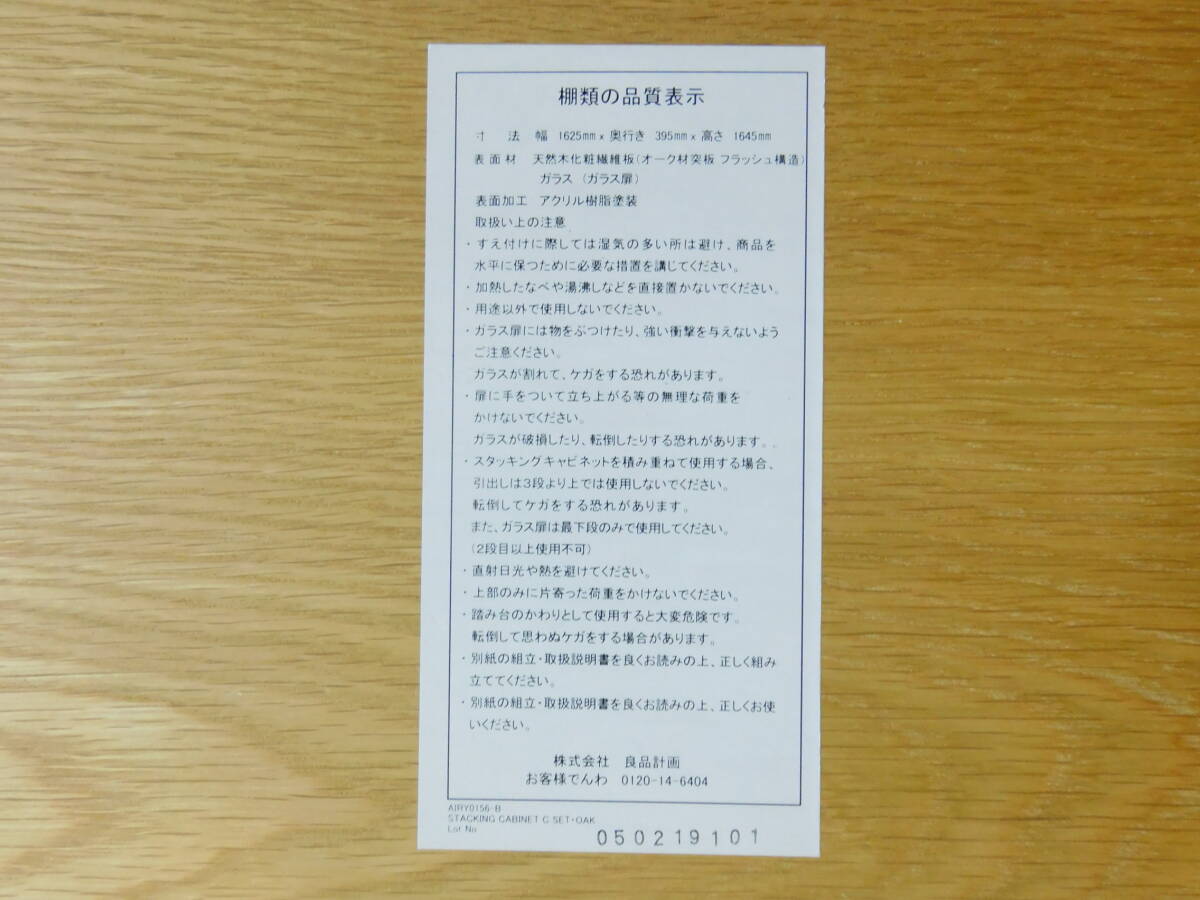 棚類の品質表示
寸 法 幅 1625mm x 奥行き 395mm x 高さ 1645mm
表面材 天然木化粧繊維板(オーク材突板 フラッシュ構造)
ガラス (ガラス扉)
表面加工 アクリル樹脂塗装
取扱い上の注意
・すえ付けに際しては湿気の多い所は避け、商品を
水平に保つために必要な措置を講じてください。
・加熱したなべや湯沸しなどを直接置かないでください。
・用途以外で使用しないでください。
・ガラス扉には物をぶつけたり、強い衝撃を与えないよう
ご注意ください。
ガラスが割れて、ケガをする恐れがあります。
・扉に手をついて立ち上がる等の無理な荷重を
かけないでください。
ガラスが破損したり、転倒したりする恐れがあります。
・スタッキングキャビネットを積み重ねて使用する場合、
引出しは3段より上では使用しないでください。
転倒してケガをする恐れがあります。
また、ガラス扉は最下段のみで使用してください。
(2段目以上使用不可)
・直射日光や熱を避けてください。
・上部のみに片寄った荷重をかけないでください。
・踏み台のかわりとして使用すると大変危険です。
転倒して思わぬケガをする場合があります。
・別紙の組立・取扱説明書を良くお読みの上、正しく組み
立ててください。
・別紙の組立・取扱説明書を良くお読みの上、正しくお使
いください。
株式会社 良品計画
お客様でんわ 0120-14-6404
AIRY0156-B
STACKING CABINET C SET・OAK
Lot No 050219101